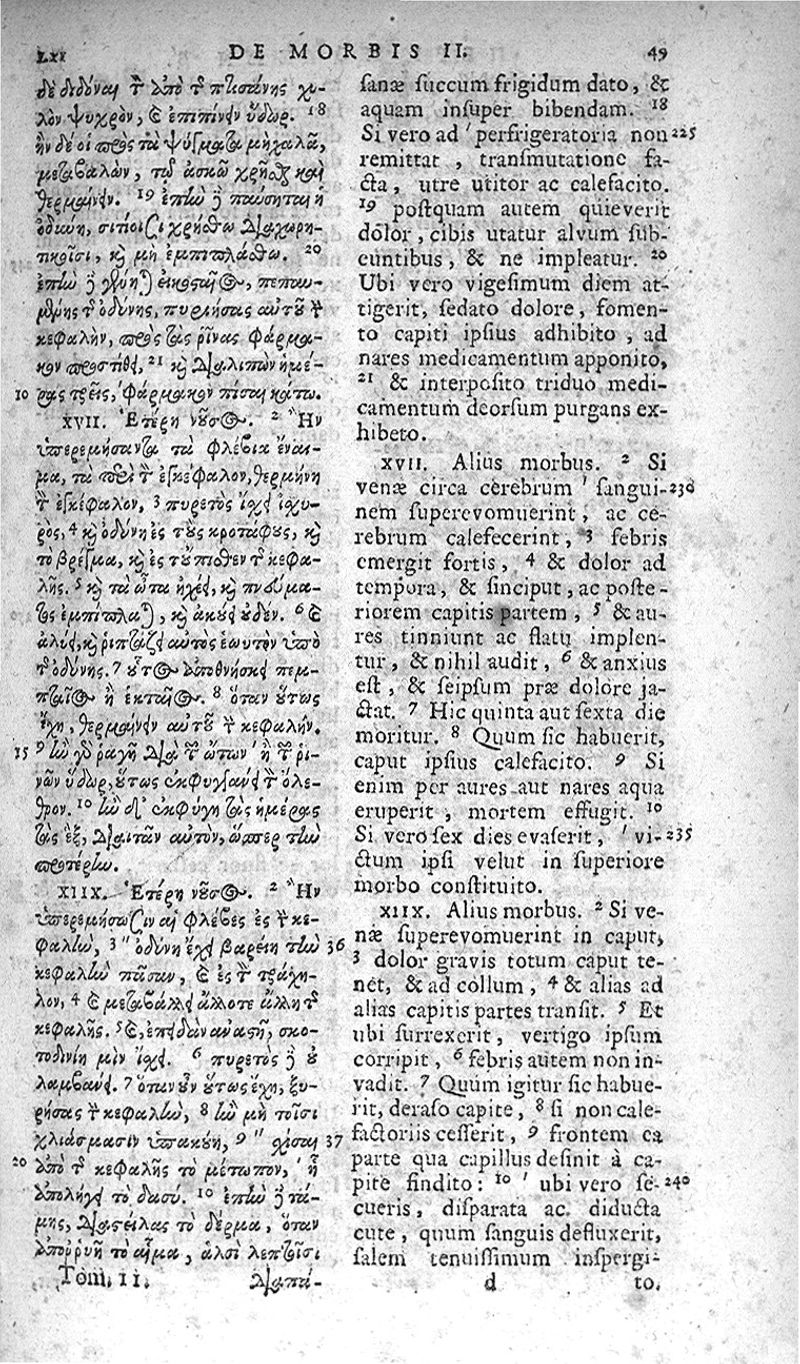 LXI DE MORBIS II. 49
δὲ διδόναι τὸν ἀπὸ τῆς πτισάνης χυ-
λὸν ψυχρὸν, καὶ ἐπιπίνειν ὕδωρ. 18
ἢν δέ οἱ πρὸς τὰ ψύγματα μὴ χαλᾷ,
μεταβαλὼν, τῷ ἀσκῷ χρῆσθαι καὶ
θερμαίνειν. 19 ἐπὴν δὲ παύσηται ἡ
ὀδύνη, σιτίοισι χρήσθω διαχωρη-
τικοῖσι, καὶ μὴ ἐμπιπλάσθω. 20
ἐπὴν δὲ γένηται εἰκοσταῖος, πεπαυ-
μένης τῆς ὀδύνης, πυριήσας αὐτοῦ τὴν
κεφαλὴν, πρὸς τὰς ῥῖνας φάρμα-
κον προστιθέναι, 21 καὶ διαλιπὼν ἡμέ-
10 ρας τρεῖς, φάρμακον πῖσαι κάτω.
XVII. Ἑτέρη νοῦσος. 2 Ἢν
ὑπερεμήσαντα τὰ φλέβια ἔναι-
μα, τὰ περὶ τὸν ἐγκέφαλον, θερμήνῃ
τὸν ἐγκέφαλον, 3 πυρετὸς ἴσχει ἰσχυ-
ρὸς, 4 καὶ ὀδύνη ἐς τοὺς κροτάφους, καὶ
τὸ βρέγμα, καὶ ἐς τοὔπισθεν τῆς κεφα-
λῆς. 5 καὶ τὰ ὦτα ἠχέει, καὶ πνεύμα-
τος ἐμπίπλαται, καὶ ἀκούει οὐδέν. 6 καὶ
ἀλύει, καὶ ῥιπτάζει αὐτὸς ἑωυτὸν ὑπὸ
τῆς ὀδύνης. 7 οὗτος ἀποθνήσκει πεμ-
πταῖος ἢ ἑκταῖος. 8 ὅταν οὕτως
ἔχῃ, θερμαίνειν αὐτοῦ τὴν κεφαλήν.
15 9 ἢν γὰρ ῥαγῇ διὰ τῶν ὤτων ἢ τῶν ῥι-
νῶν ὕδωρ, οὕτως ἐκφυγγάνει τὸν ὄλε-
θρον. 10 ἢν δ' ἐκφύγῃ τὰς ἡμέρας
τὰς ἓξ, διαιτᾶν αὐτὸν, ὥσπερ τὴν
προτέρην.
XIIX. Ἑτέρη νοῦσος. 2 Ἢν
ὑπερεμήσωσιν αἱ φλέβες ἐς τὴν κε-
φαλὴν, 3 ὀδύνη ἔχει βαρείη τὴν 36
κεφαλὴν πᾶσαν, καὶ ἐς τὸν τράχη-
λον, 4 καὶ μεταβάλλει ἄλλοτε ἄλλῃ τῆς
κεφαλῆς. 5 καὶ, ἐπειδὰν ἀναστῇ, σκο-
τοδινίη μιν ἴσχει. 6 πυρετὸς δὲ οὐ
λαμβάνει. 7 ὅταν οὖν οὕτως ἔχῃ, ξυ-
ρήσας τὴν κεφαλὴν, 8 ἢν μὴ τοῖσι
χλιάσμασιν ὑπακούῃ, 9 " σχίσαι 37
20 ἀπὸ τῆς κεφαλῆς τὸ μέτωπον, ' ᾗ
ἀπολήγει τὸ δασύ. 10 ἐπὴν δὲ τά-
μῃς, διαστείλας τὸ δέρμα, ὅταν
ἀποῤῥυῇ τὸ αἷμα, ἁλσὶ λεπτοῖσι
Tom. II. διαπά-
sanæ succum frigidum dato, &
aquam insuper bibendam. 18
Si vero ad ' perfrigeratoria non 225
remittat, transmutatione fa-
cta, utre utitor ac calefacito.
19 postquam autem quieverit
dolor, cibis utatur alvum sub-
euntibus, & ne impleatur. 20
Ubi vero vigesimum diem at-
tigerit, sedato dolore, fomen-
to capiti ipsius adhibito, ad
nares medicamentum apponito,
21 & interposito triduo medi-
camentum deorsum purgans ex-
hibeto.
XVII. Alius morbus. 2 Si
venæ circa cerebrum ' sangui- 230
nem superevomuerint, ac ce-
rebrum calefecerint, 3 febris
emergit fortis, 4 & dolor ad
tempora, & sinciput, ac poste-
riorem capitis partem, 5 & au-
res tinniunt ac flatu implen-
tur, & nihil audit, 6 & anxius
est, & seipsum præ dolore ja-
ctat. 7 Hic quinta aut sexta die
moritur. 8 Quum sic habuerit,
caput ipsius calefacito. 9 Si
enim per aures aut nares aqua
eruperit, mortem effugit. 10
Si vero sex dies evaserit, ' vi- 235
ctum ipsi velut in superiore
morbo constituito.
XIIX. Alius morbus. 2 Si ve-
næ superevomuerint in caput,
3 dolor gravis totum caput te-
net, & ad collum, 4 & alias ad
alias capitis partes transit. 5 Et
ubi surrexerit, vertigo ipsum
corripit, 6 febris autem non in-
vadit. 7 Quum igitur sic habue-
rit, deraso capite, 8 si non cale-
factoriis cesserit, 9 frontem ea
parte qua capillus desinit à ca-
pite findito: 10 ' ubi vero se- 240
cueris, disparata ac diducta
cute, quum sanguis defluxerit,
salem tenuissimum inspergi-
d to.